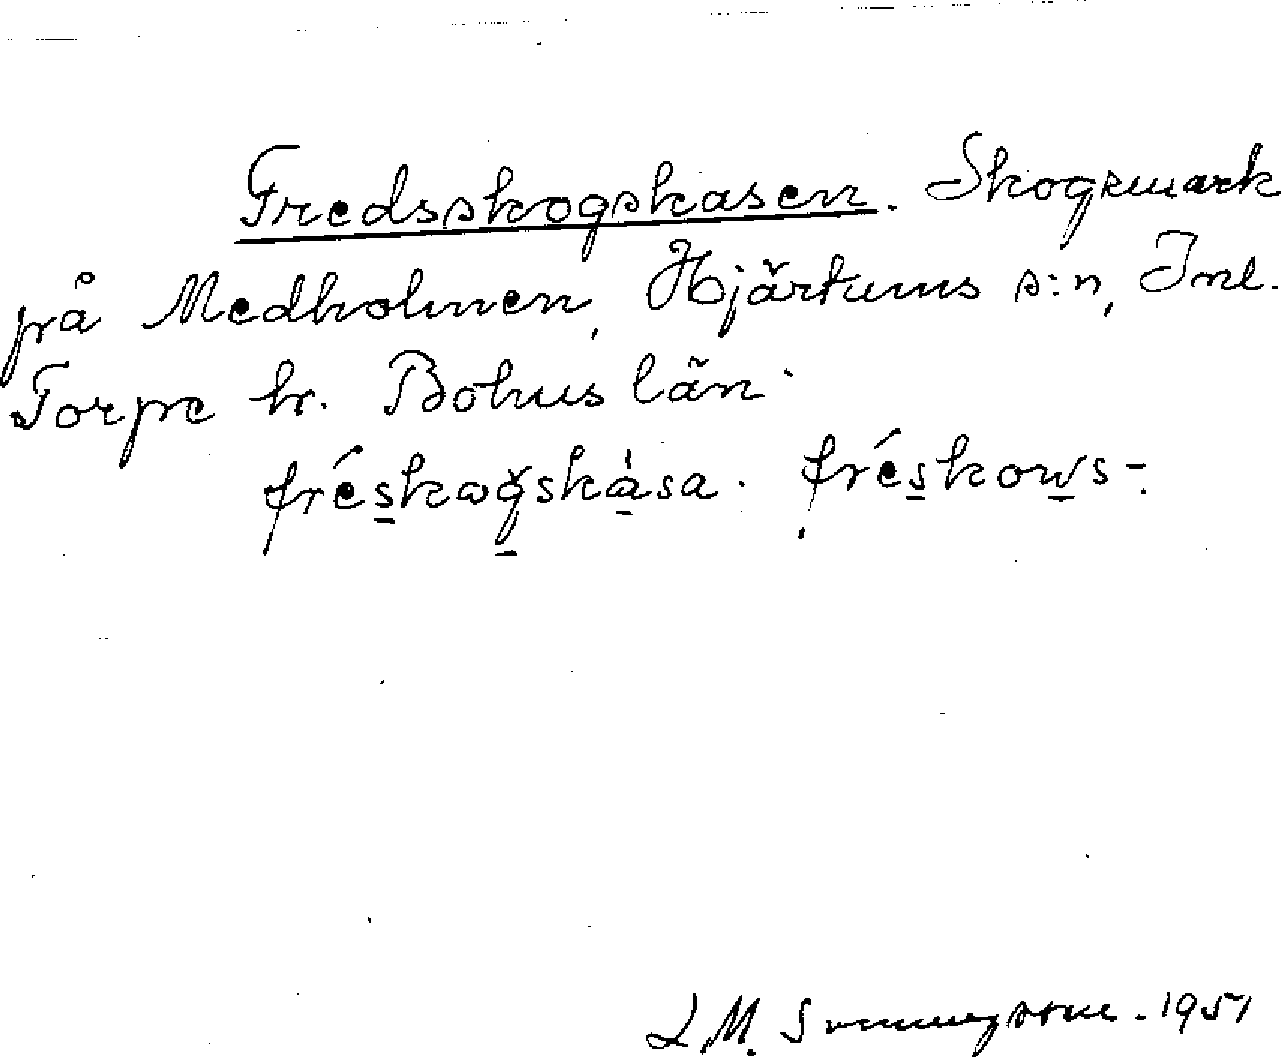 Fredsskogskasen. Skogsmark
på Medholmen, Hjärtums s:n, Inl.
Torpe hr. Bohus län.
fréskogskása. fréskows-.
L M. Svenungsson. 1951